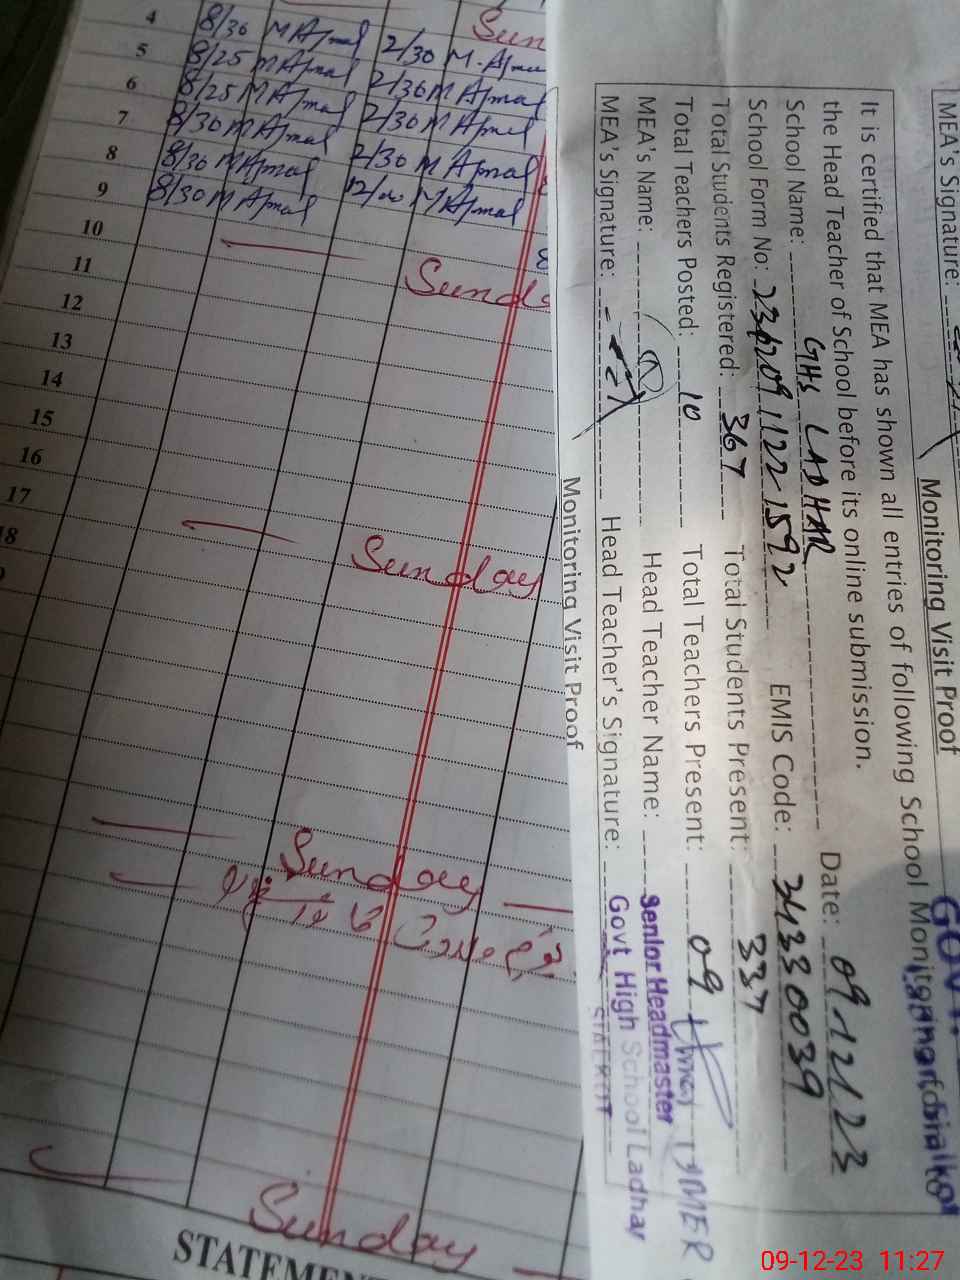 4 8/30 M Ajmal Sun
5 8/25 M Ajmal 2/30 M. Ajmal
6 8/25 M Ajmal 2/30 M Ajmal
7 8/30 M Ajmal 2/30 M Ajmal
8 8/30 M Ajmal 2/30 M Ajmal
9 8/30 M Ajmal 12/00 M Ajmal
10
11 Sunda
12
13
14
15
16
17
18 Sunday
Sunday
Sunday
STATEMEN
MEA's Signature:
Monitoring Visit Proof
It is certified that MEA has shown all entries of following School Monitoring
the Head Teacher of School before its online submission.
School Name: GHS LADHAR Date: 09/12/23
School Form No: 2362091122 1592 EMIS Code: 34330039
Total Students Registered: 367 Total Students Present: 337
Total Teachers Posted: 10 Total Teachers Present: 09
MEA's Name: Head Teacher Name: Senior Headmaster
MEA's Signature: Head Teacher's Signature: Govt High School Ladhar
Monitoring Visit Proof
09-12-23 11:27